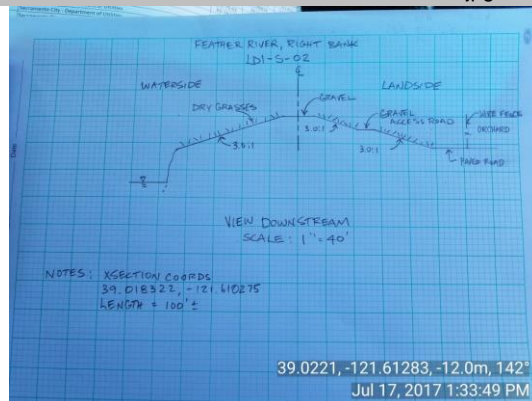 Sacramento City - Department of Utilities
FEATHER RIVER, RIGHT BANK
LD1-S-02
WATERSIDE
LANDSIDE
DRY GRASSES
GRAVEL
GRAVEL
ACCESS ROAD
WIRE FENCE
ORCHARD
3.0:1
3.0:1
3.0:1
PAVED ROAD
VIEW DOWNSTREAM
SCALE: 1" = 40'
NOTES: XSECTION COORDS
39.018322, -121.610275
LENGTH = 100' ±
39.0221, -121.61283, -12.0m, 142°
Jul 17, 2017 1:33:49 PM